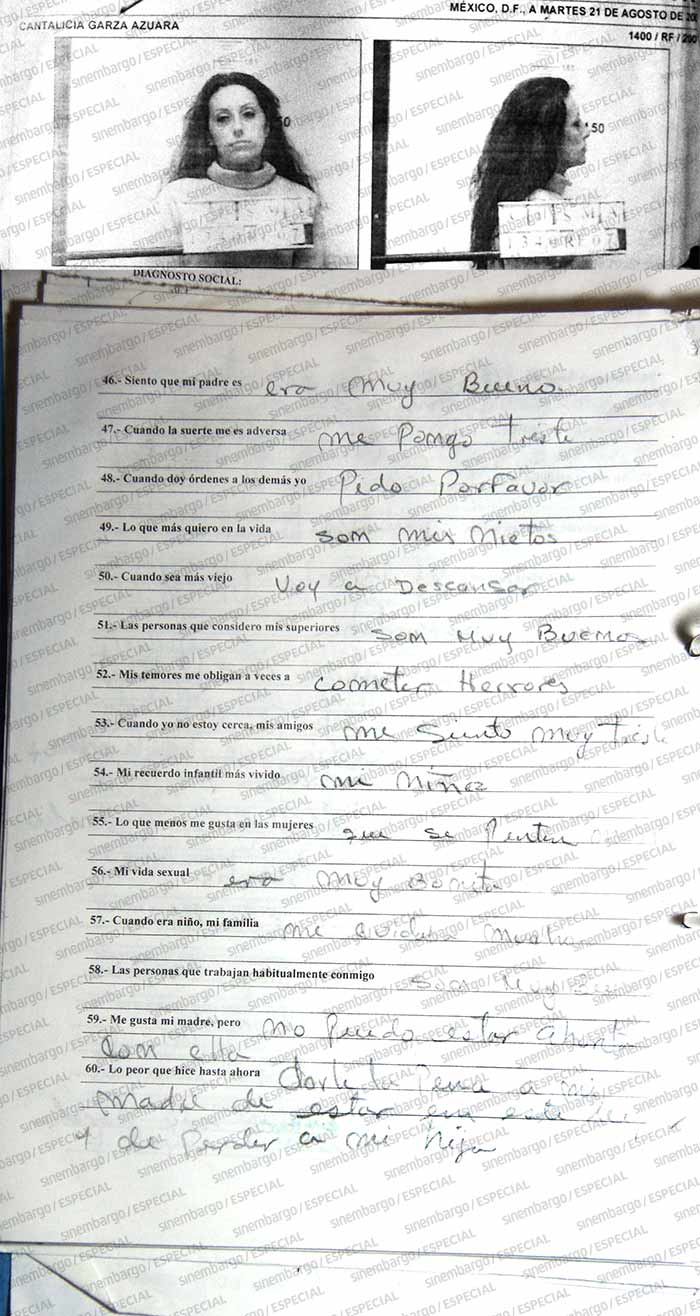 MÉXICO, D.F., A MARTES 21 DE AGOSTO DE
CANTALICIA GARZA AZUARA
1400 / RF /
50
DIAGNOSTO SOCIAL:
46.- Siento que mi padre es era muy Bueno.
47.- Cuando la suerte me es adversa me Pongo Triste
48.- Cuando doy órdenes a los demás yo Pido Porfavor
49.- Lo que más quiero en la vida som mis Nietos
50.- Cuando sea más viejo Voy a Descansar
51.- Las personas que considero mis superiores som Muy Buenos
52.- Mis temores me obligan a veces a cometer Herrores
53.- Cuando yo no estoy cerca, mis amigos me Siento muy Triste
54.- Mi recuerdo infantil más vivido mi niñez
55.- Lo que menos me gusta en las mujeres que se
56.- Mi vida sexual era muy Bonita
57.- Cuando era niño, mi familia me
58.- Las personas que trabajan habitualmente conmigo som Muy
59.- Me gusta mi madre, pero no puedo estar
com ella
60.- Lo peor que hice hasta ahora Darle la Pena a mi
Madre de estar em este
y de Perder a mi hija
sinembargo / ESPECIAL